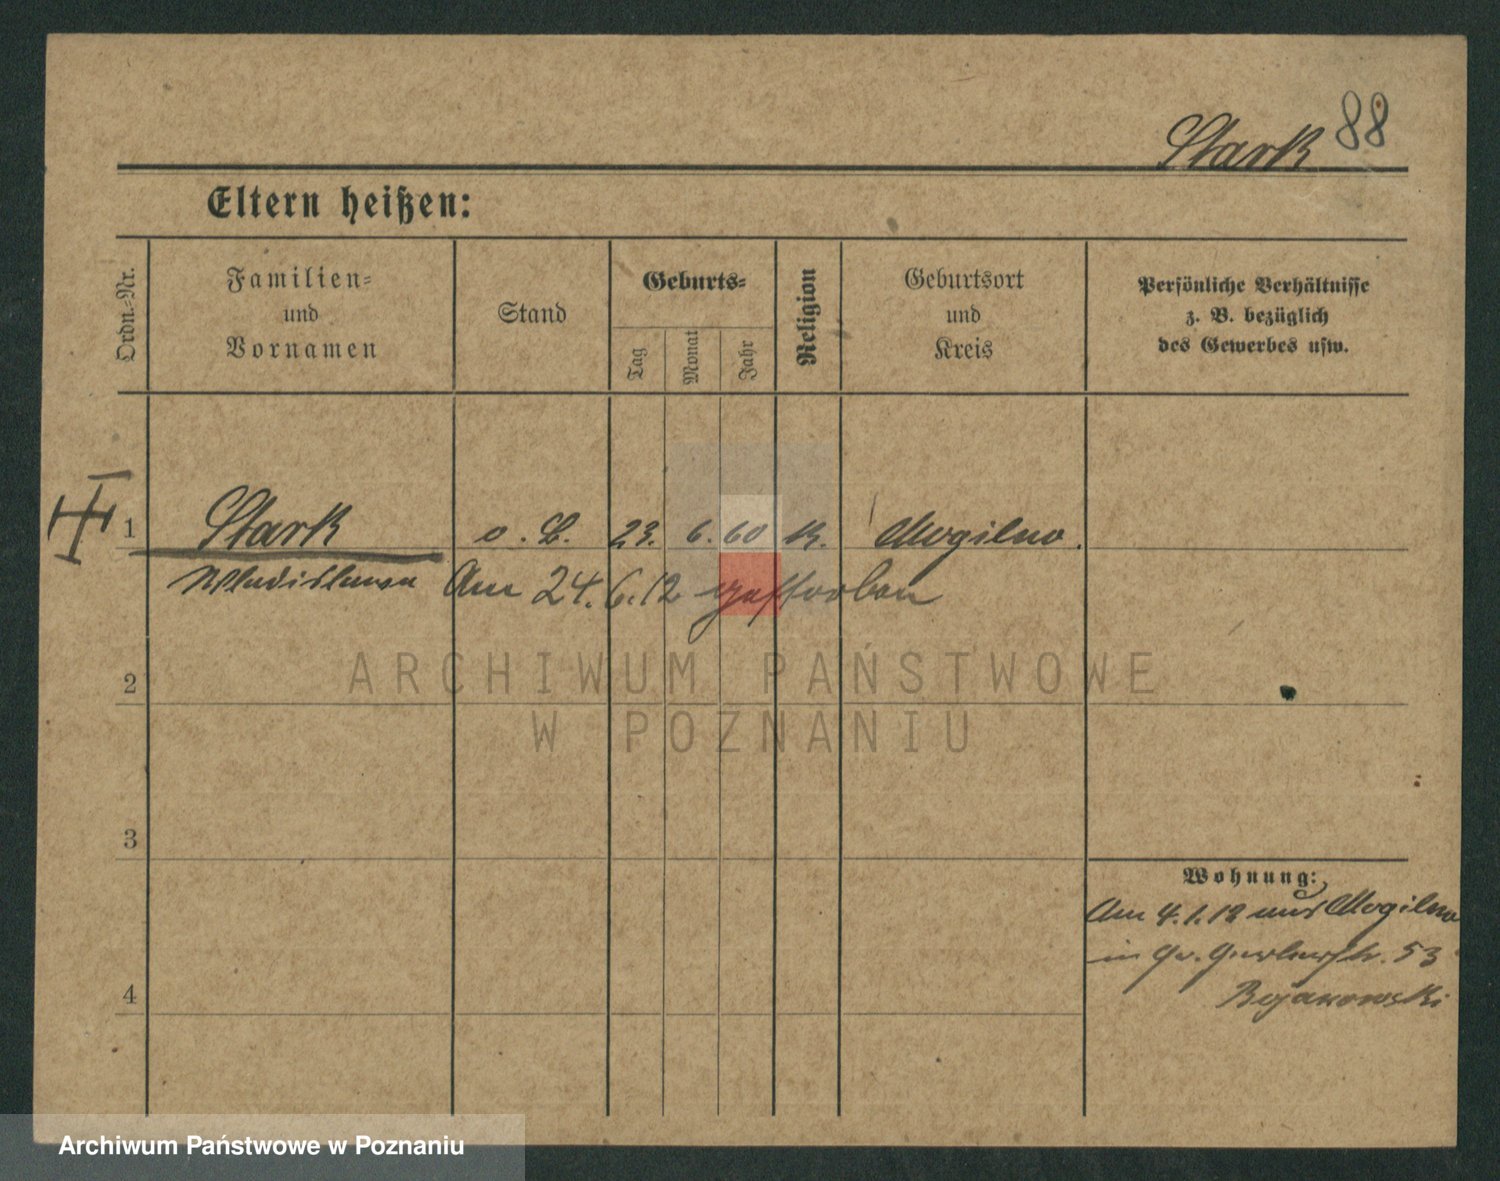 Stark 88
Eltern heißen:
Ordn.-Nr.
Familien-
und
Vornamen
Stand
Geburts-
Tag
Monat
Jahr
Religion
Geburtsort
und
Kreis
Persönliche Verhältnisse
z. B. bezüglich
des Gewerbes usw.
1 Stark o. B. 23. 6. 60 K. Mogilno.
Wladislawa Am 24. 6. 12 gestorben
2
3
4
Wohnung:
Am 4. 1. 12 aus Mogilno
in Gr. Gerberstr. 53
Bojanowski
ARCHIWUM PAŃSTWOWE
W POZNANIU
Archiwum Państwowe w Poznaniu